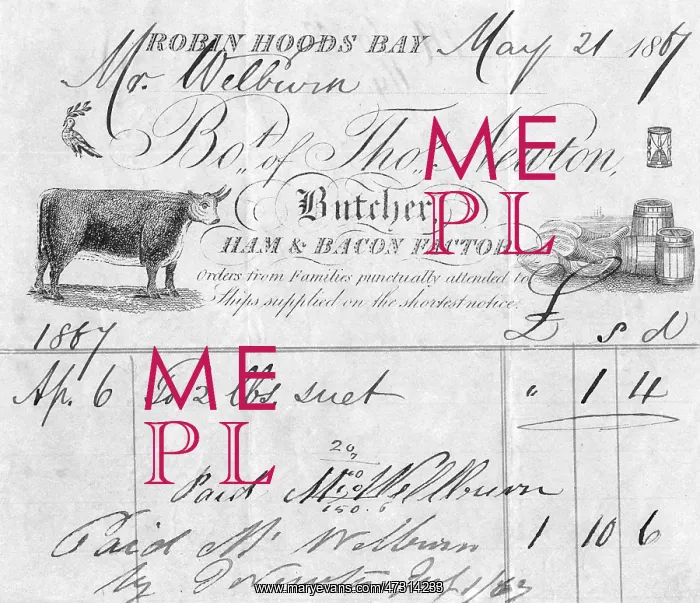 ROBIN HOODS BAY May 21 1867
Mr. Welburn
Bo.t of Tho.s Newton,
Butcher,
HAM & BACON FACTOR
Orders from Families punctually attended to
Ships supplied on the shortest notice.
£ s d
1867
Ap. 6 To 2 lbs suet " 1 4
20
Paid Mr Wellburn
150. 6
Paid Mr Welburn 1 10 6
by
ME
PL
ME
PL
www.maryevans.com/47314233